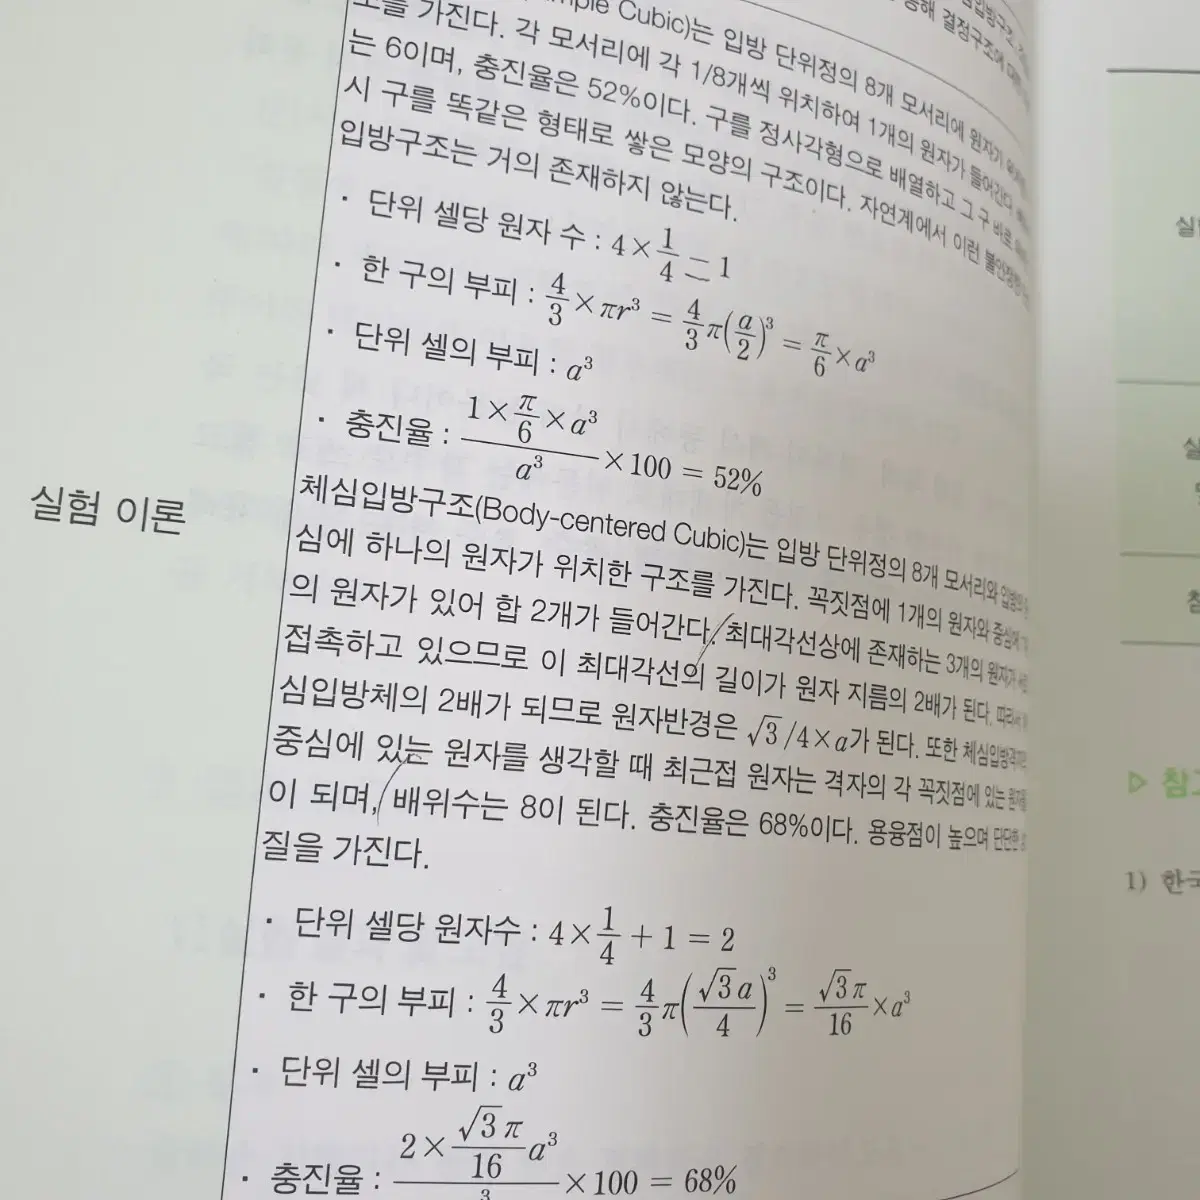 Cubic)는 입방 단위정의 8개 모서리에 원자가
가진다. 각 모서리에 각 1/8개씩 위치하여 1개의 원자가 들어간다.
는 6이며, 충진율은 52%이다. 구를 정사각형으로 배열하고 그 구 바로
시 구를 똑같은 형태로 쌓은 모양의 구조이다. 자연계에서 이런 불안정한
입방구조는 거의 존재하지 않는다.
· 단위 셀당 원자 수 : 4 × 1/4 = 1
· 한 구의 부피 : 4/3 × πr³ = 4/3 π(a/2)³ = π/6 × a³
· 단위 셀의 부피 : a³
· 충진율 : (1 × π/6 × a³)/a³ × 100 = 52%
실험 이론
체심입방구조(Body-centered Cubic)는 입방 단위정의 8개 모서리와 입방의
심에 하나의 원자가 위치한 구조를 가진다. 꼭짓점에 1개의 원자와 중심에
의 원자가 있어 합 2개가 들어간다. 최대각선상에 존재하는 3개의 원자가
접촉하고 있으므로 이 최대각선의 길이가 원자 지름의 2배가 된다. 따라서
심입방체의 2배가 되므로 원자반경은 √3/4×a가 된다. 또한 체심입방격자의
중심에 있는 원자를 생각할 때 최근접 원자는 격자의 각 꼭짓점에 있는 원자들
이 되며, 배위수는 8이 된다. 충진율은 68%이다. 용융점이 높으며 단단한
질을 가진다.
· 단위 셀당 원자수 : 4 × 1/4 + 1 = 2
· 한 구의 부피 : 4/3 × πr³ = 4/3 π(√3a/4)³ = √3π/16 × a³
· 단위 셀의 부피 : a³
· 충진율 : 2 × √3π/16 a³ × 100 = 68%
▷ 참고
1) 한국